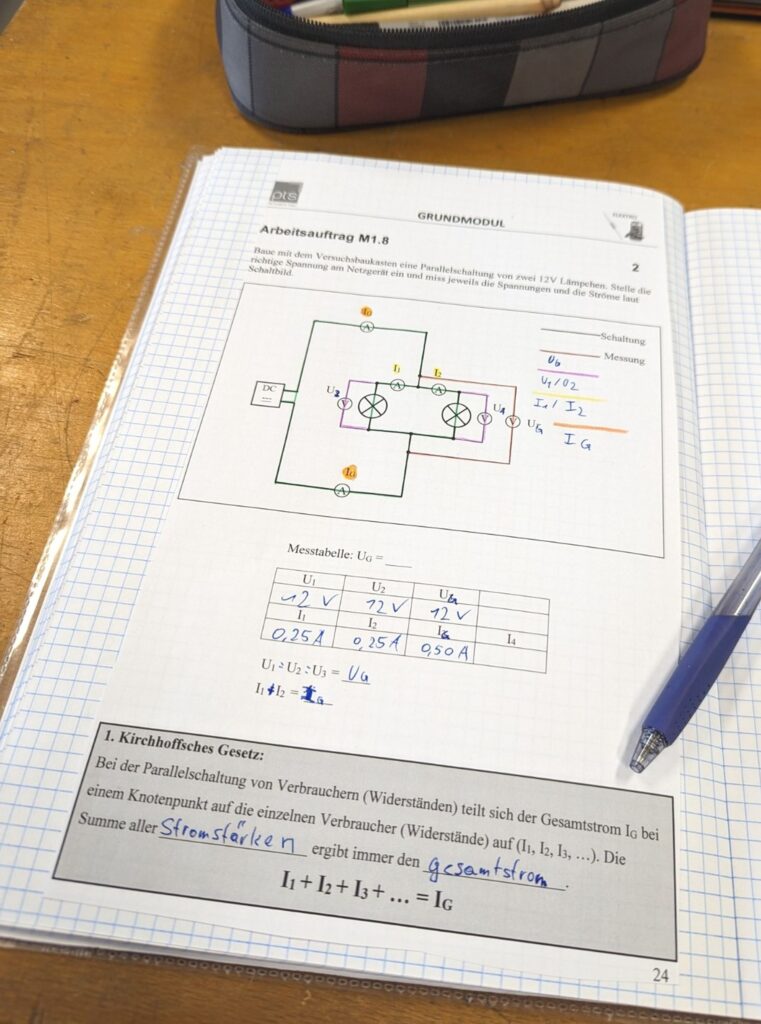 pts
GRUNDMODUL
Arbeitsauftrag M1.8
2
Baue mit dem Versuchsbaukasten eine Parallelschaltung von zwei 12V Lämpchen. Stelle die
richtige Spannung am Netzgerät ein und miss jeweils die Spannungen und die Ströme laut
Schaltbild.
IG
A
Schaltung
Messung
UG
U1/U2
I1/ I2
IG
I1
I2
A
A
DC
U2
V
V
U1
V
UG
IG
A
Messtabelle: UG = ___
U1 U2 UG
12 V 12 V 12 V
I1 I2 IG I4
0,25A 0,25A 0,50 A
U1 = U2 = U3 = UG
I1 + I2 = IG
1. Kirchhoffsches Gesetz:
Bei der Parallelschaltung von Verbrauchern (Widerständen) teilt sich der Gesamtstrom IG bei
einem Knotenpunkt auf die einzelnen Verbraucher (Widerstände) auf (I1, I2, I3, …). Die
Summe aller Stromstärken ergibt immer den gesamtstrom.
I1 + I2 + I3 + … = IG
24